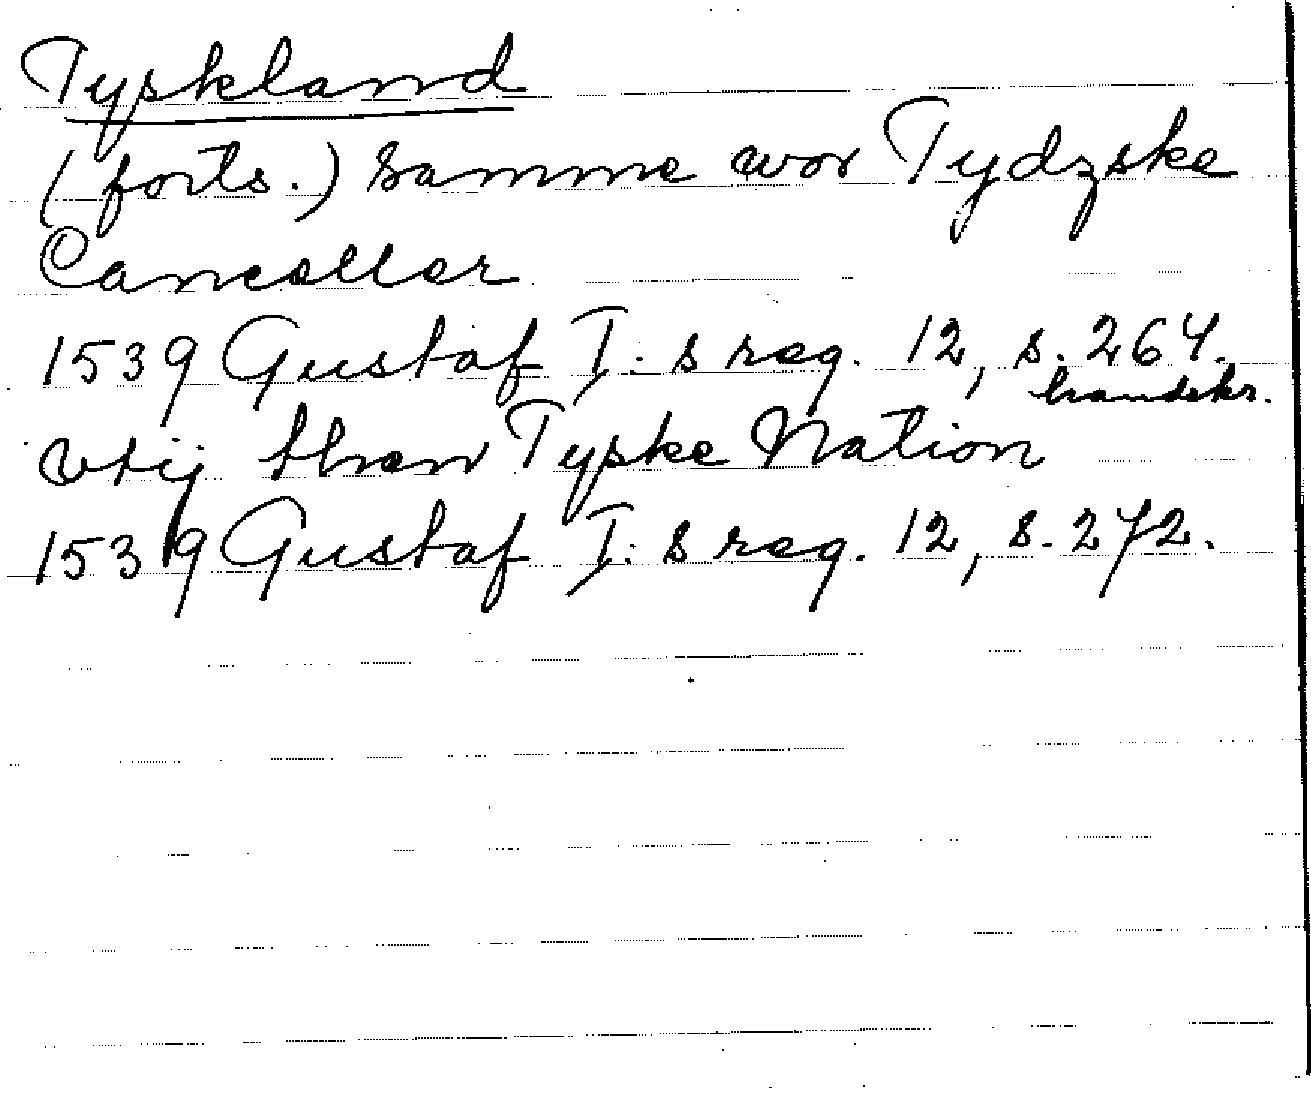 Tyskland
(forts.) Samme wor Tydzske
Canceller
1539 Gustaf I:s reg. 12, s. 264.
handskr.
vtij then Tyske Nation
1539 Gustaf I:s reg. 12, s. 272.